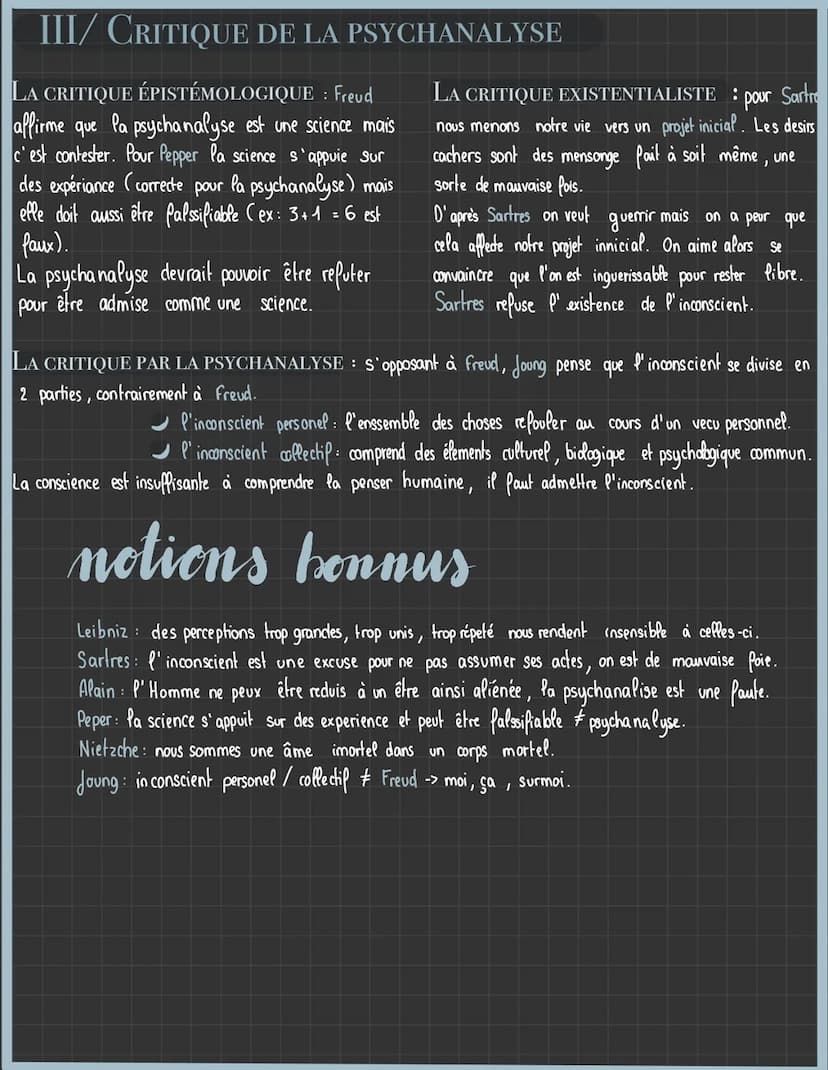 III/ CRITIQUE DE LA PSYCHANALYSE
LA CRITIQUE ÉPISTÉMOLOGIQUE : Freud
affirme que la psychanalyse est une science mais
c'est contester. Pour Pepper la science s'appuie sur
des expériance (correcte pour la psychanalyse) mais
elle doit aussi être falssifiable (ex: 3+1 = 6 est
faux).
La psychanalyse devrait pouvoir être refuter
pour être admise comme une science.
LA CRITIQUE EXISTENTIALISTE : pour Sartre
nous menons notre vie vers un projet inicial. Les desirs
cachers sont des mensonge fait à soit même, une
sorte de mauvaise fois.
D'après Sartres on veut guerrir mais on a peur que
cela affecte notre projet innicial. On aime alors se
convaincre que l'on est inguerissable pour rester libre.
Sartres refuse l'existence de l'inconscient.
LA CRITIQUE PAR LA PSYCHANALYSE : s'opposant à Freud, Joung pense que l'inconscient se divise en
2 parties, contrairement à Freud.
l'inconscient personel : l'enssemble des choses refouler au cours d'un vecu personnel.
l'inconscient collectif : comprend des élements culturel, biologique et psychologique commun.
La conscience est insuffisante à comprendre la penser humaine, il faut admettre l'inconscient.
notions bonnus
Leibniz : des perceptions trop grandes, trop unis, trop répeté nous rendent insensible à celles-ci.
Sartres : l'inconscient est une excuse pour ne pas assumer ses actes, on est de mauvaise foie.
Alain : l'Homme ne peux être reduis à un être ainsi aliénée, la psychanalise est une faute.
Peper : la science s'appuit sur des experience et peut être falssifiable ≠ psychanalyse.
Nietzche : nous sommes une âme imortel dans un corps mortel.
Joung : inconscient personel / collectif ≠ Freud -> moi, ça, surmoi.